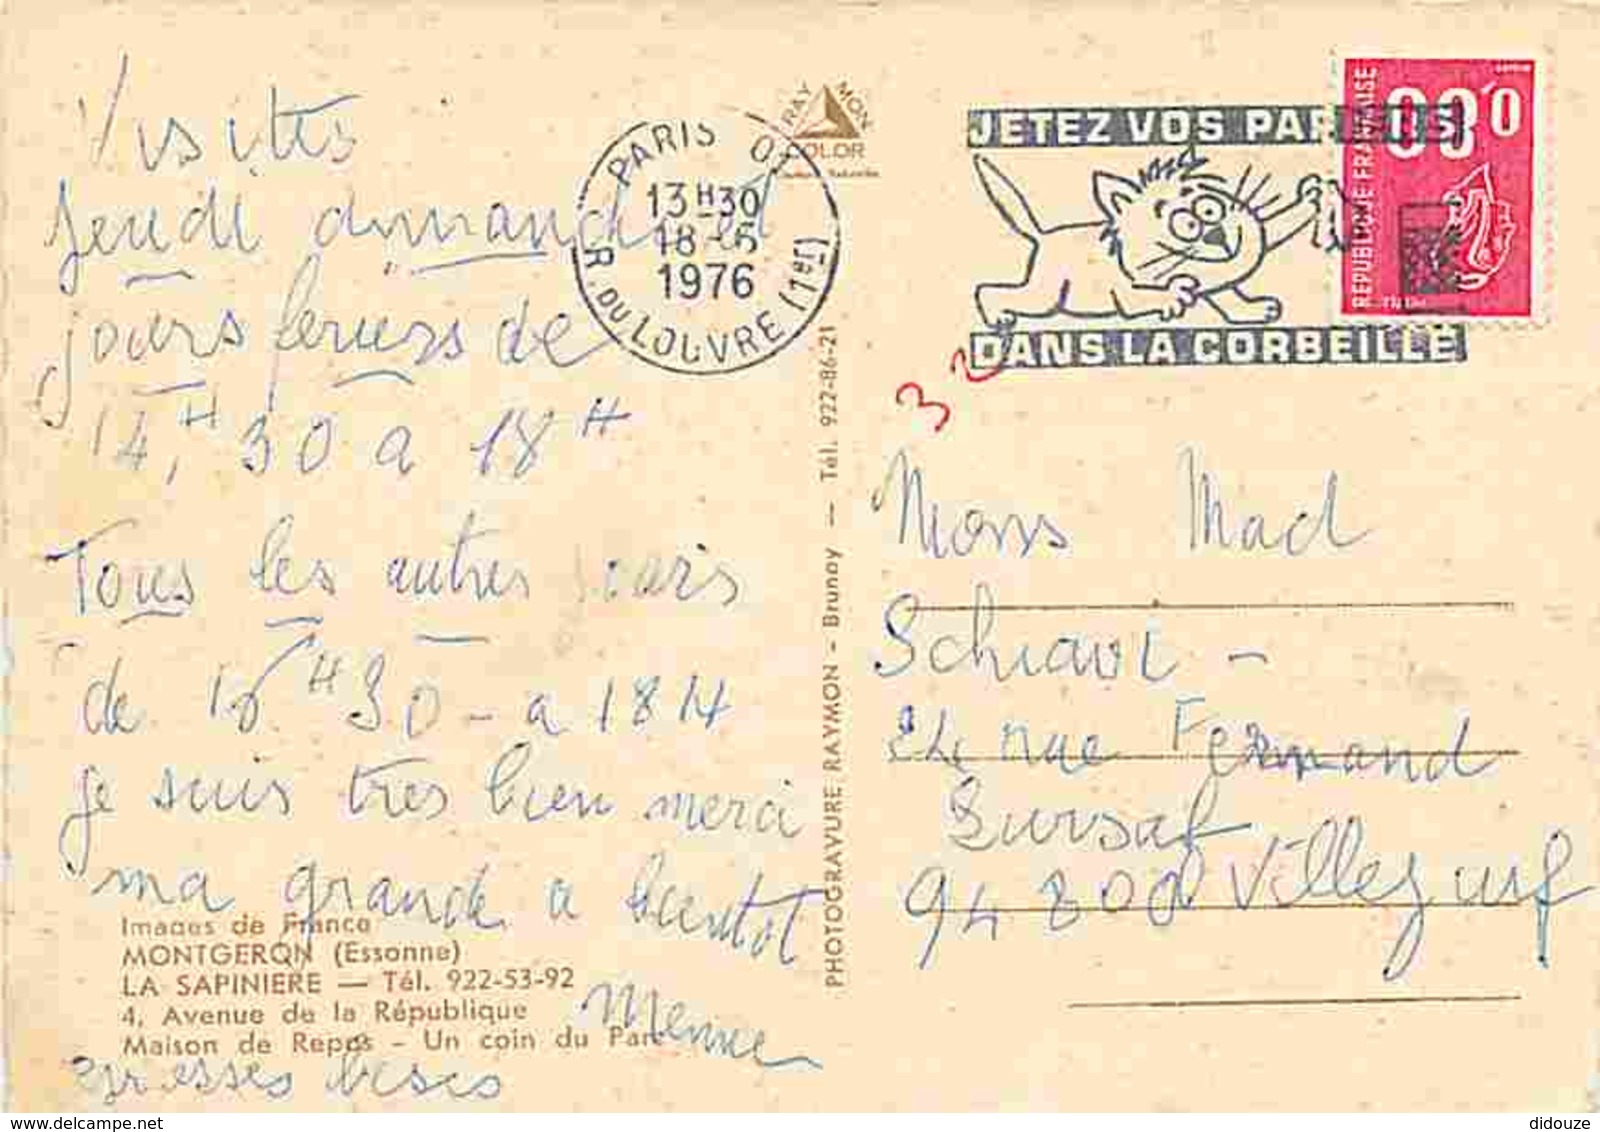 Visites
jeudi dimanche et
jours feriers de
14,H 30 a 18H
Tous les autres jours
de 16H30 - a 18H
je suis très bien merci
ma grande a bientot
Memne
grosses bises
Images de France
MONTGERON (Essonne)
LA SAPINIERE — Tél. 922-53-92
4, Avenue de la République
Maison de Repos - Un coin du Parc
RAYMON
COLOR
PHOTOGRAVURE RAYMON - Brunoy — Tél. 922-86-21
PARIS 01
13H30
18-5
1976
R. DU LOUVRE (1er)
JETEZ VOS PAPIERS
DANS LA CORBEILLE
REPUBLIQUE FRANÇAISE
3 2
Mons Mad
Schiavi -
rue Fernand
94800 Villejuif
www.delcampe.net
didouze